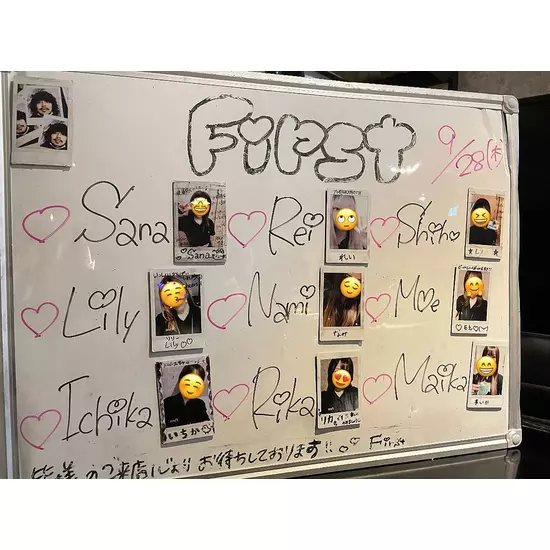 First
9/28(木)
Sana
Sana
Rei
れい
Shiho
Lily
リリー
Lily
Nami
なみ
Moe
もえ
Ichika
いちか♡
Rika
リカ
Maika
まいか
皆様のご来店心よりお待ちしております!! First